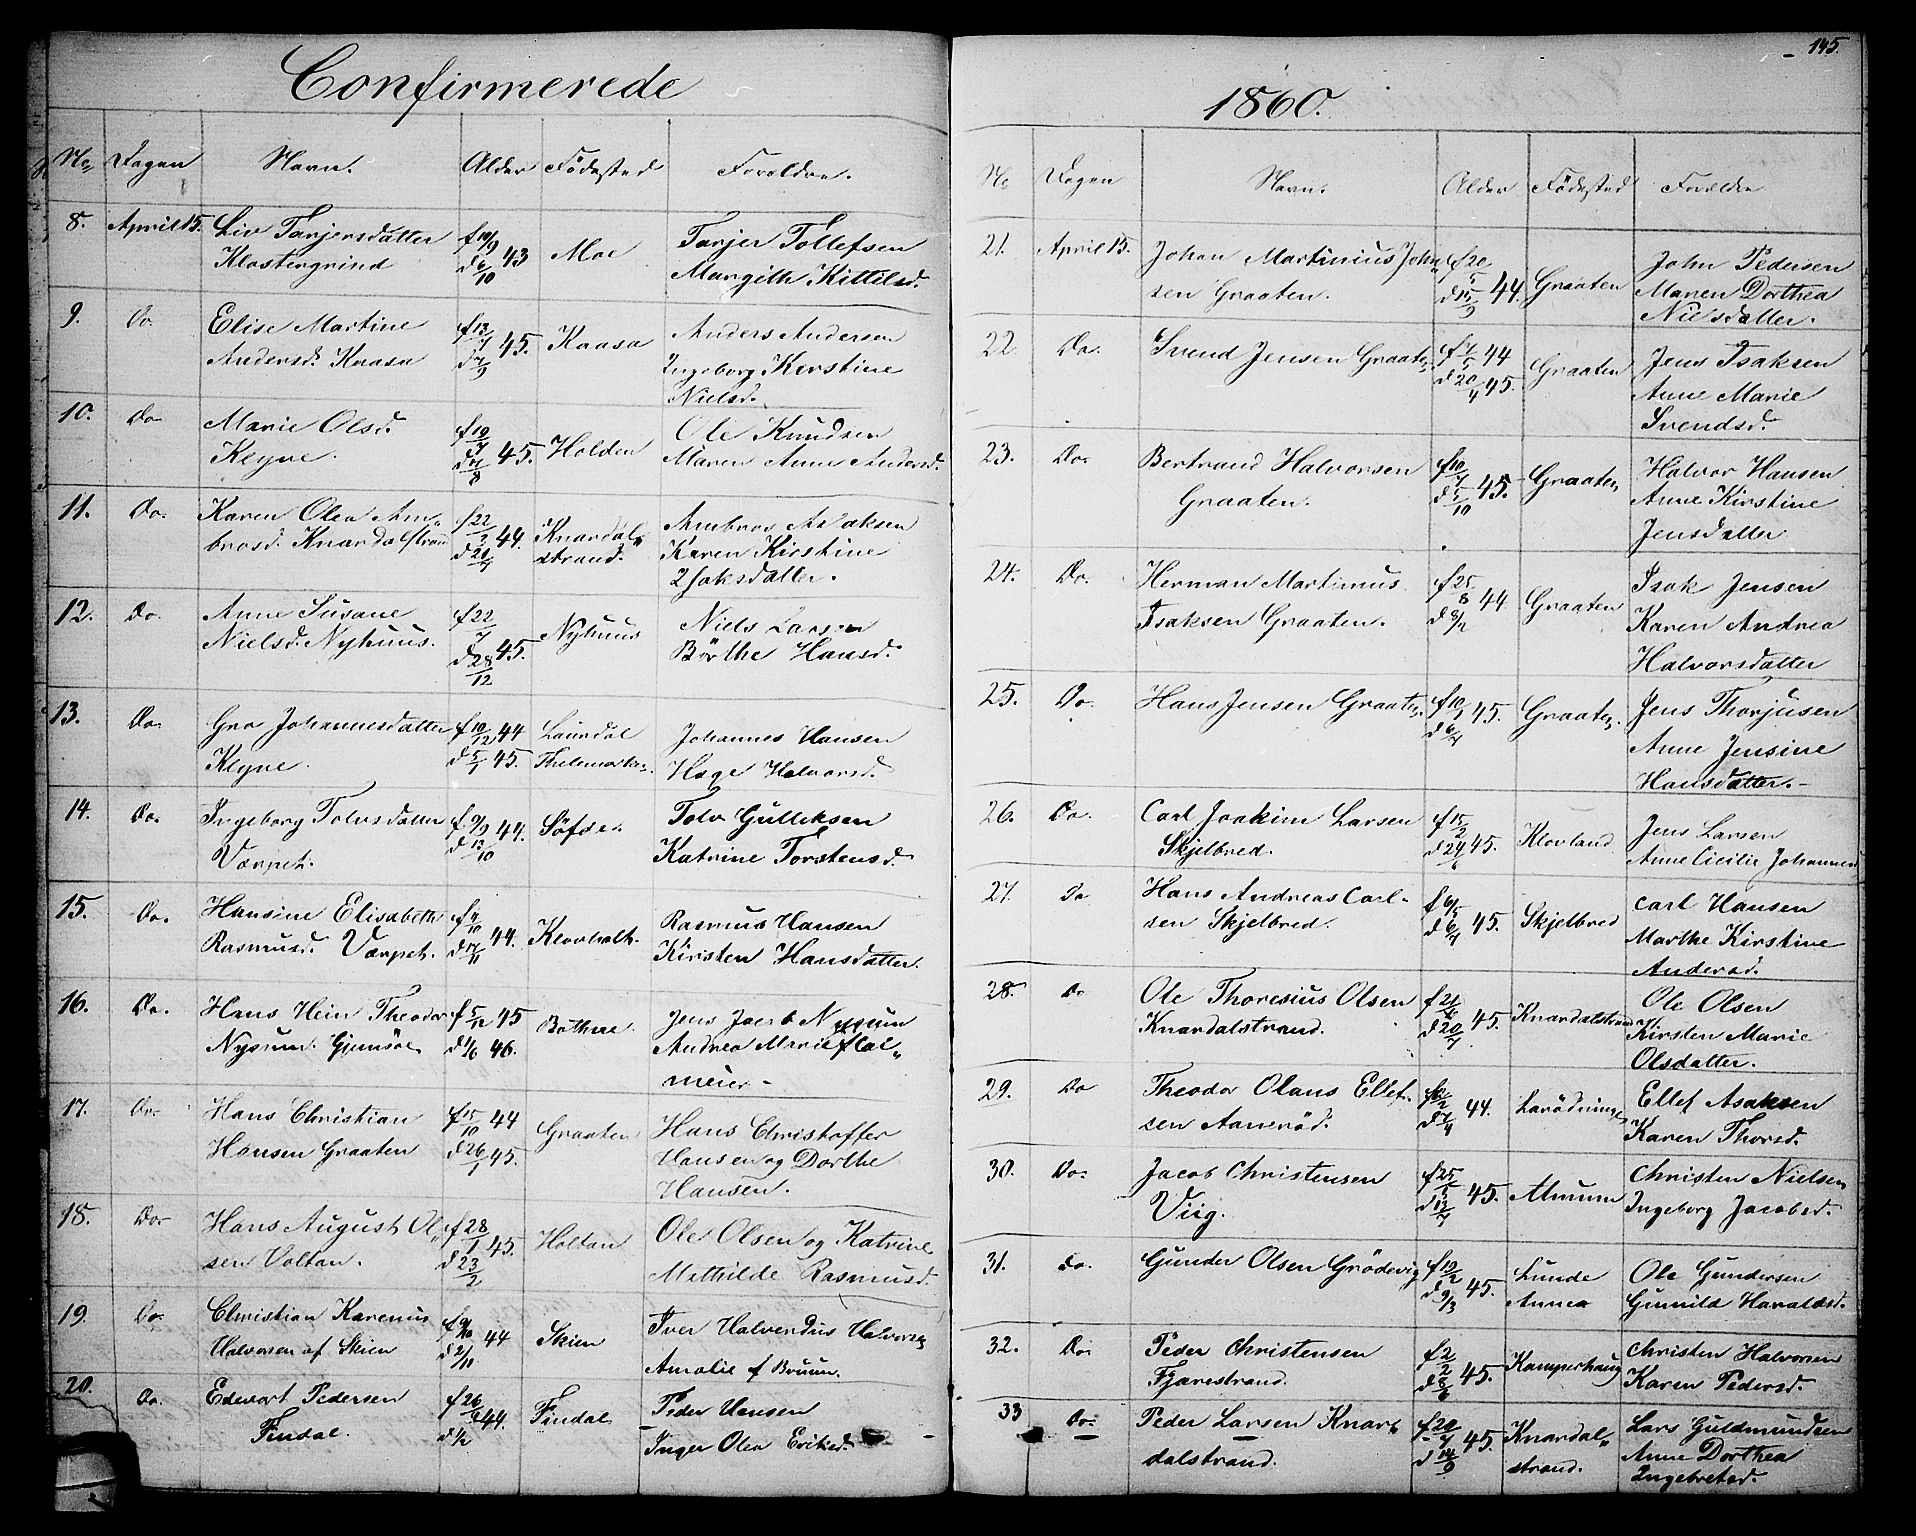 Confirmerede
No Dagen Navn. Alder Födested Forældre.
8. April 15. Liv Tarjersdatter f 10/9 43 Moe Tarjer Tollefsen
Klostergrind d 6/10 Margith Kittilsd.
9. Do. Elise Martine f 13/7 45. Kaasa Anders Andersen
Andersd. Kaasa d 7/9 Ingeborg Kirstine
Nielsd.
10. Do Marie Olsd. f 19/7 45. Holden Ole Knudsen
Kleyve. Maren Anne Andersd.
11. Do. Karen Olea Am- f 22/2 44. Knardal-
brosd. Knardalstrand d 20/4 strand. Ambros Asaksen
Karen Kirstine
Isaksdatter.
12. Do. Anne Susane f 22/7 45. Nyhuus Niels Larsen
Nielsd. Nyhuus. d 28/12 Börthe Hansd.
13. Do. Gro Johannesdatter f 10/12 44 Laurdal Johannes Hansen
Kleyve. d 5/1 45. Thelemarken. Hæge Halvorsd.
14. Do. Ingeborg Tolvsdatter f 9/9 44. Söfde. Tolv Gulleksen
Værpet. d 13/10 Katrine Torstensd.
15. Do. Hansine Elisabeth f 4/10 44. Klovholt. Rasmus Hansen
Rasmusd. Værpet. d 17/11 Kirsten Hansdatter.
16. Do. Hans Hein Theodor f 5/12 45 Jens Jacob Nysum
Nysum. Gjemsöe d 1/6 46. Andrea Marie Hol-
meier-
17. Do. Hans Christian f 15/10 44 Graaten Hans Christoffer
Hansen Graaten d 26/1 45. Hansen og Dorthe
Hansen.
18. Do. Hans August Ol- f 28/1 45. Holtan Ole Olsen og Katrine
sen Voltan. d 23/2 Mathilde Rasmusd.
19. Do. Christian Karenus f 9/10 44 Skien Iver Halvordus Halvorsen
Halvorsen af Skien d 2/11 Amalie f Bruun.
20. Do. Edevart Pedersen f 26/9 44. Findal Peder Hansen
Findal. d 1/12 Inger Olea Eriksd.
145.
1860.
No Dagen Navn. Alder Födested Forældre
21. April 15. Johan Martinius John- f 20/5 44. Graaten John Pedersen
sen Graaten. d 15/9 Maren Dorthea
Nielsdatter.
22 Do. Svend Jensen Graaten. f 4/5 44 Graaten Jens Isaksen
d 20/4 45. Anne Marie
Svendsd.
23. Do. Bertrand Halvorsen f 10/7 45. Graaten, Halvor Hansen
Graaten. d 5/10 Anne Kirstine
Jensdatter
24. Do. Herman Martinus f 25/8 44 Graaten Isak Jensen
Isaksen Graaten. d 8/12 Karen Andrea
Halvorsdatter
25. Do. Hans Jensen Graaten. f 10/1 45. Graaten. Jens Thorjusen
d 6/4 Anne Jensine
Hansdatter.-
26. Do. Carl Joakim Larsen f 15/2 45. Klovland Jens Larsen
Skjelbred. d 24/6 Anne Cicilie Johannesd
27. Do Hans Andreas Carl- f 6/5 45. Skjelbred Carl Hansen
sen Skjelbred. d 6/7 Marthe Kirstine
Andersd.
28. Do Ole Thoresius Olsen f 21/6 45. Knardalstrand Ole Olsen
Knardalstrand. d 20/7 Kirsten Marie
Olsdatter.
29. Do Theodor Olaus Ellef- 44. Ellef Asaksen
sen Aanerød. d 7/4 Karen Thorsd.
30. Do. Jacob Christensen f 25/5 45. Christen Nielsen
Viig. d 13/7 Ingeborg Jacobsd.
31. Do. Gunder Olsen Grödevig f 19/2 45. Lunde Ole Gundersen
d 9/3 Annex Gunild Haraldsd.
32. Do. Peder Christensen f 2/2 45. Kamperhaug Christen Halvorsen
Fjærestrand. d 8/6 Karen Pedersd.
33 Do. Peder Larsen Knar- f 20/7 45. Knardal- Lars Guldmundsen
dalstrand. d 14/9 strand. Anne Dorthea
Ingebretsd.